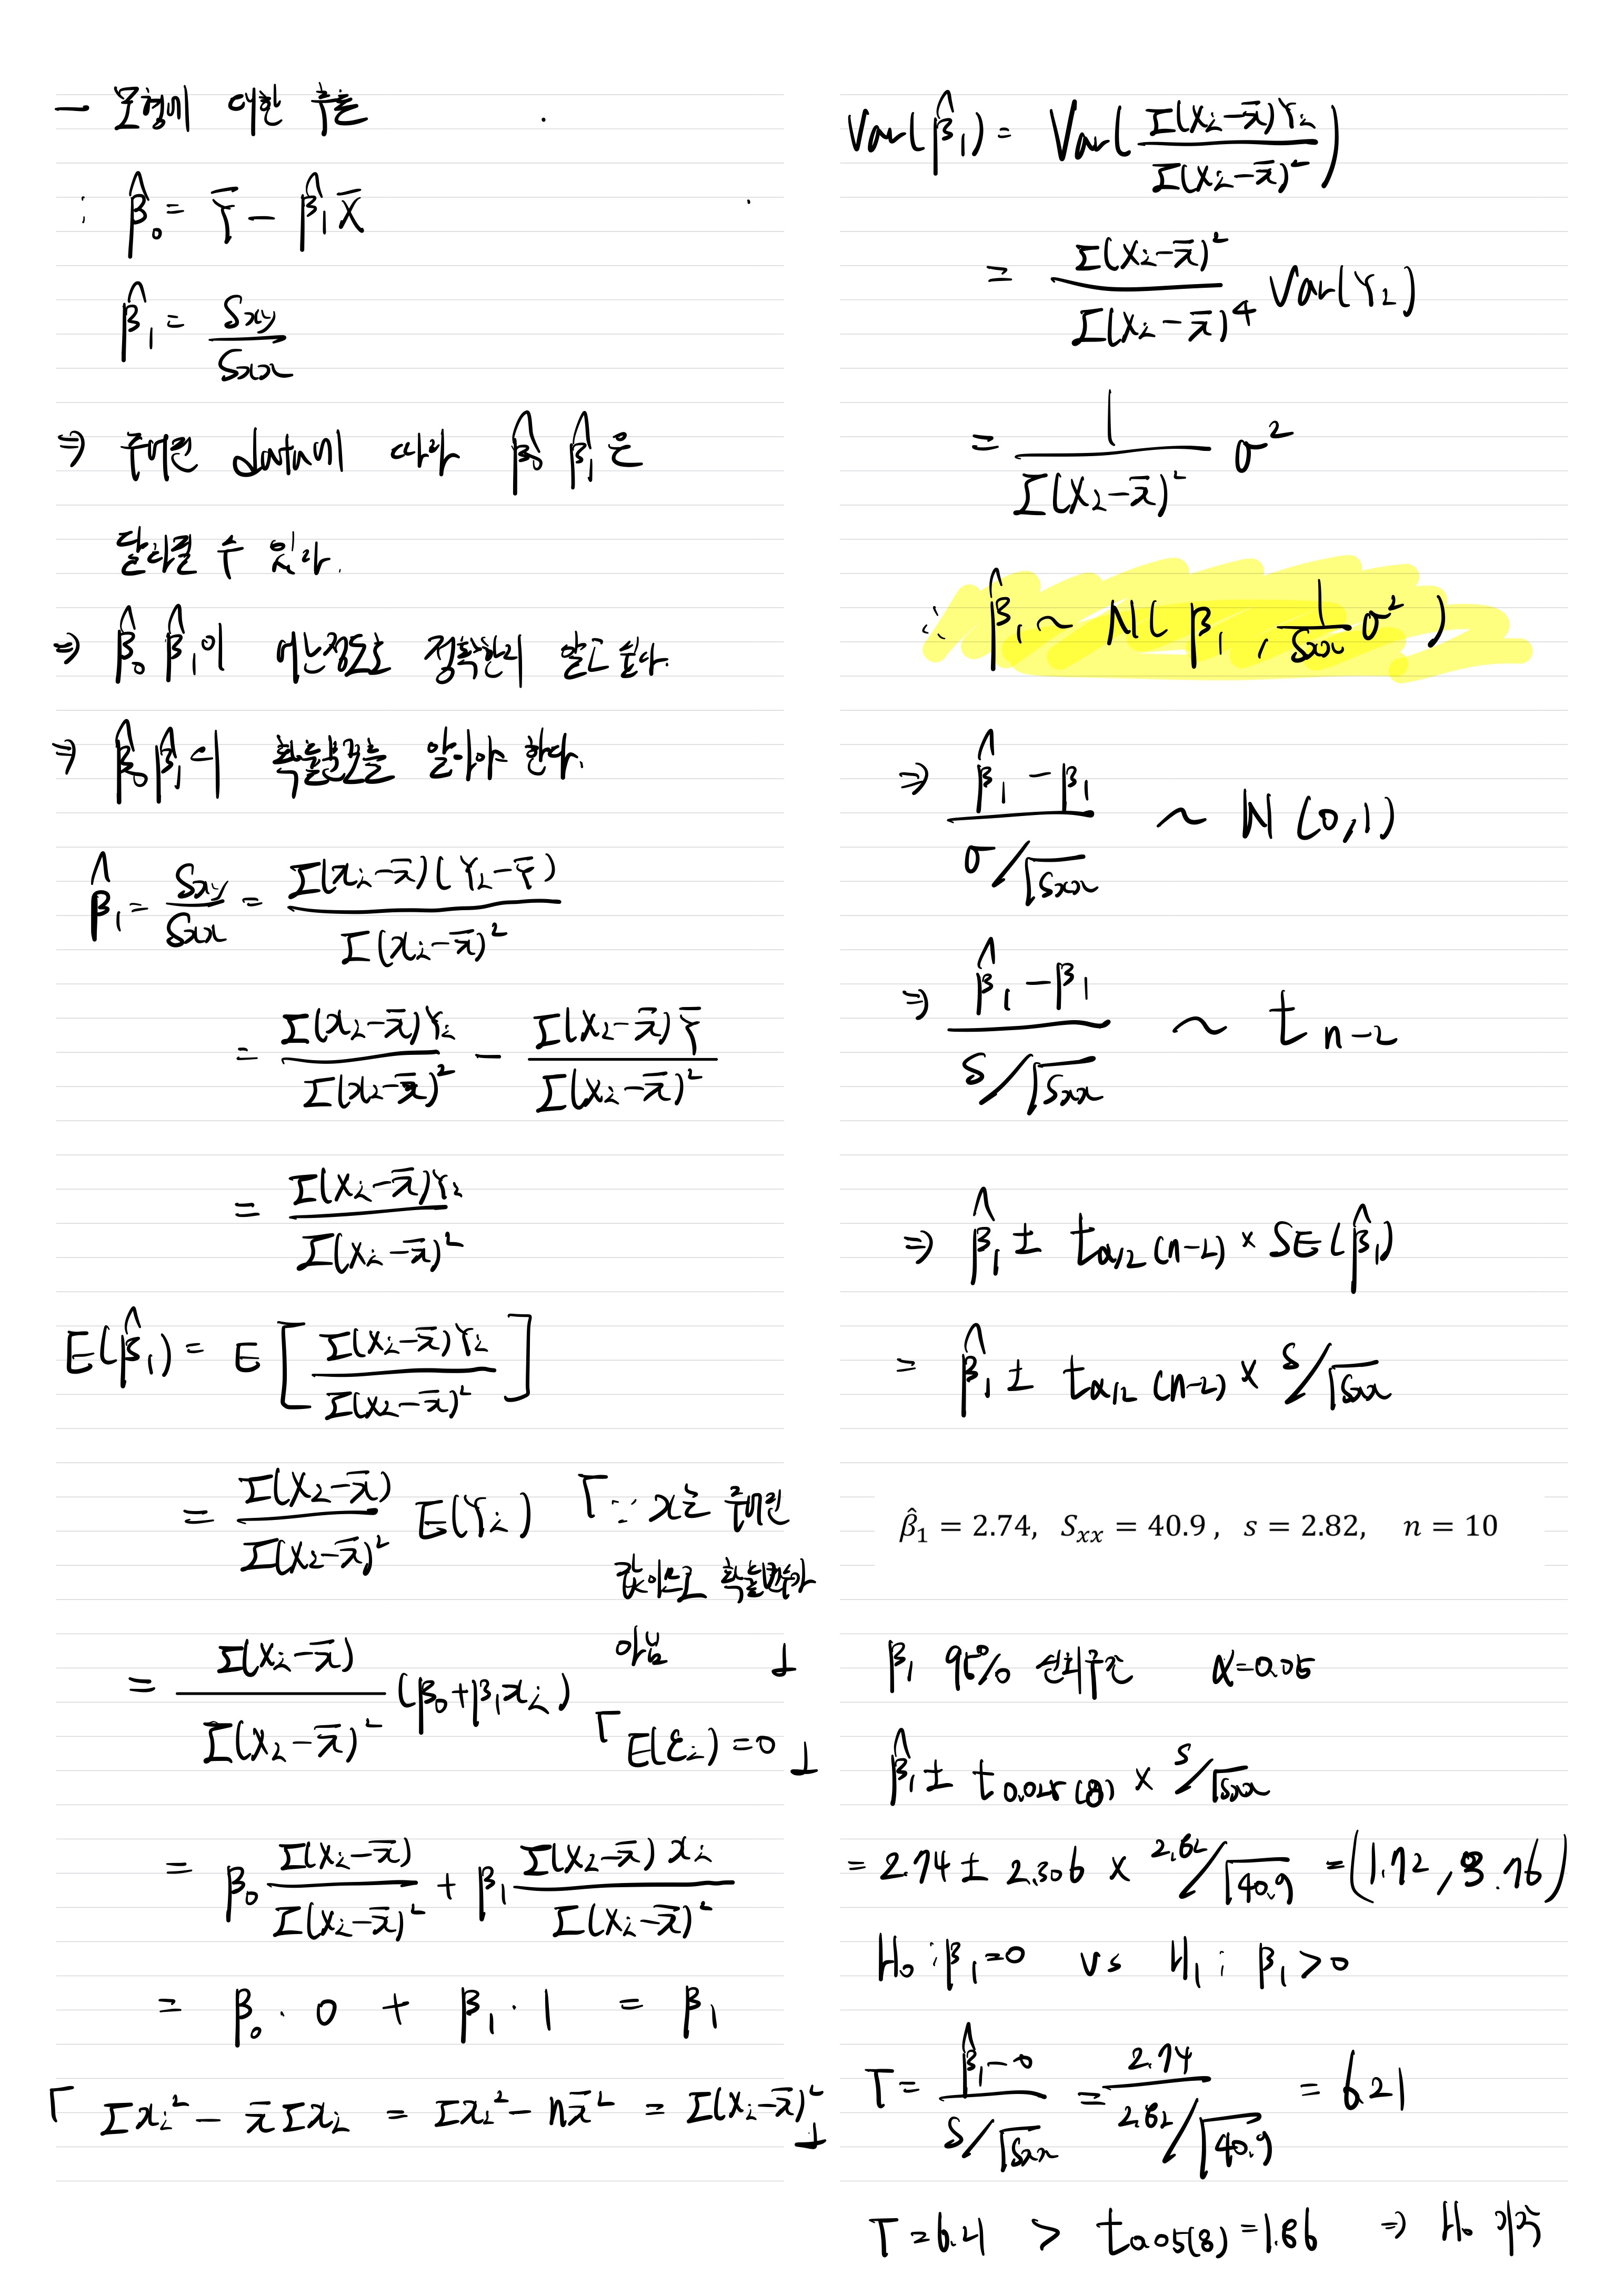 - 모형에 대한 추론
: β̂₀ = Ȳ - β̂₁x̄
β̂₁ = Sxy/Sxx
⇒ 주어진 data에 따라 β̂₀ β̂₁은
달라질 수 있다.
⇒ β̂₀ β̂₁이 어느정도로 정확한지 알고 싶다.
⇒ β̂₀ β̂₁의 확률분포를 알아야 한다.
β̂₁ = Sxy/Sxx = Σ(xᵢ-x̄)(Yᵢ-Ȳ) / Σ(xᵢ-x̄)²
= Σ(xᵢ-x̄)Yᵢ / Σ(xᵢ-x̄)² - Σ(xᵢ-x̄)Ȳ / Σ(xᵢ-x̄)²
= Σ(xᵢ-x̄)Yᵢ / Σ(xᵢ-x̄)²
E(β̂₁) = E[Σ(xᵢ-x̄)Yᵢ / Σ(xᵢ-x̄)²]
= Σ(xᵢ-x̄) / Σ(xᵢ-x̄)² E(Yᵢ) 「∵ x는 주어진
값이므로 확률변수가
아님 」
= Σ(xᵢ-x̄) / Σ(xᵢ-x̄)² (β₀+β₁xᵢ) 「E(εᵢ)=0」
= β₀ Σ(xᵢ-x̄) / Σ(xᵢ-x̄)² + β₁ Σ(xᵢ-x̄)xᵢ / Σ(xᵢ-x̄)²
= β₀·0 + β₁·1 = β₁
「Σxᵢ² - x̄Σxᵢ = Σxᵢ² - nx̄² = Σ(xᵢ-x̄)²」
Var(β̂₁) = Var(Σ(xᵢ-x̄)Yᵢ / Σ(xᵢ-x̄)²)
= Σ(xᵢ-x̄)² / Σ(xᵢ-x̄)⁴ Var(Yᵢ)
= 1 / Σ(xᵢ-x̄)² σ²
∴ β̂₁ ~ N(β₁, 1/Sxx σ²)
⇒ (β̂₁ - β₁) / (σ/√Sxx) ~ N(0,1)
⇒ (β̂₁ - β₁) / (S/√Sxx) ~ t n-2
⇒ β̂₁ ± tα/2 (n-2) × SE(β̂₁)
= β̂₁ ± tα/2 (n-2) × S/√Sxx
β̂₁ = 2.74, Sxx = 40.9 , s = 2.82, n = 10
β₁ 95% 신뢰구간 α=0.05
β̂₁ ± t0.025(8) × S/√Sxx
= 2.74 ± 2.306 × 2.82/√40.9 = (1.72, 3.76)
H₀ : β₁=0 vs H₁ : β₁>0
T = (β̂₁-0) / (S/√Sxx) = 2.74 / (2.82/√40.9) = 6.21
T = 6.21 > t0.05(8) = 1.86 ⇒ H₀ 기각